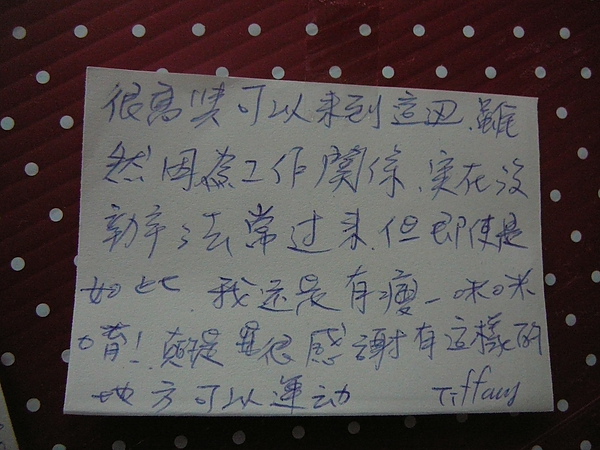 很高興可以来到這边.雖
然因為工作關係.实在沒
辦法常过来.但即使是
如此.我还是有瘦一咪咪
唷!.真是很感謝有這樣的
地方可以運动 Tiffany